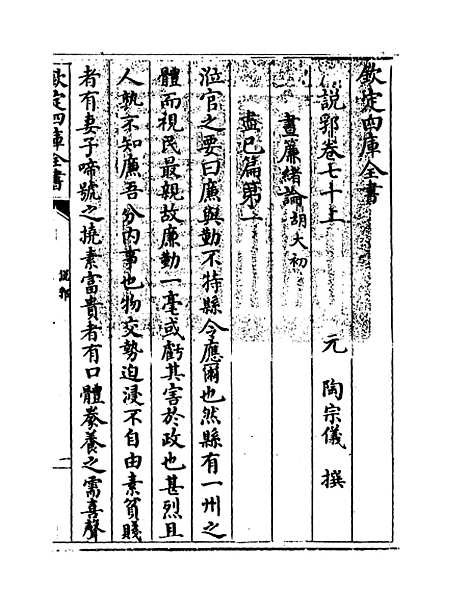 欽定四庫全書
說郛卷七十上
元 陶宗儀 撰
晝簾緒論胡大初
盡已篇第一
涖官之要曰廉與勤不特縣令應爾也然縣有一州之
體而視民最親故廉勤一毫或虧其害於政也甚烈且
人孰不知廉吾分內事也物交勢迫浸不自由素貧賤
者有妻子啼號之撓素富貴者有口體豢養之需喜聲
欽定四庫全書
說郛
一